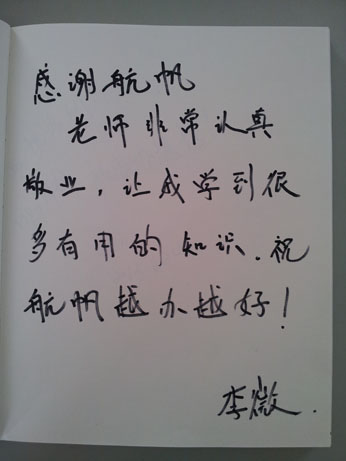 感谢航帆
老师非常认真
敬业，让我学到很
多有用的知识.祝
航帆越办越好！
李微.